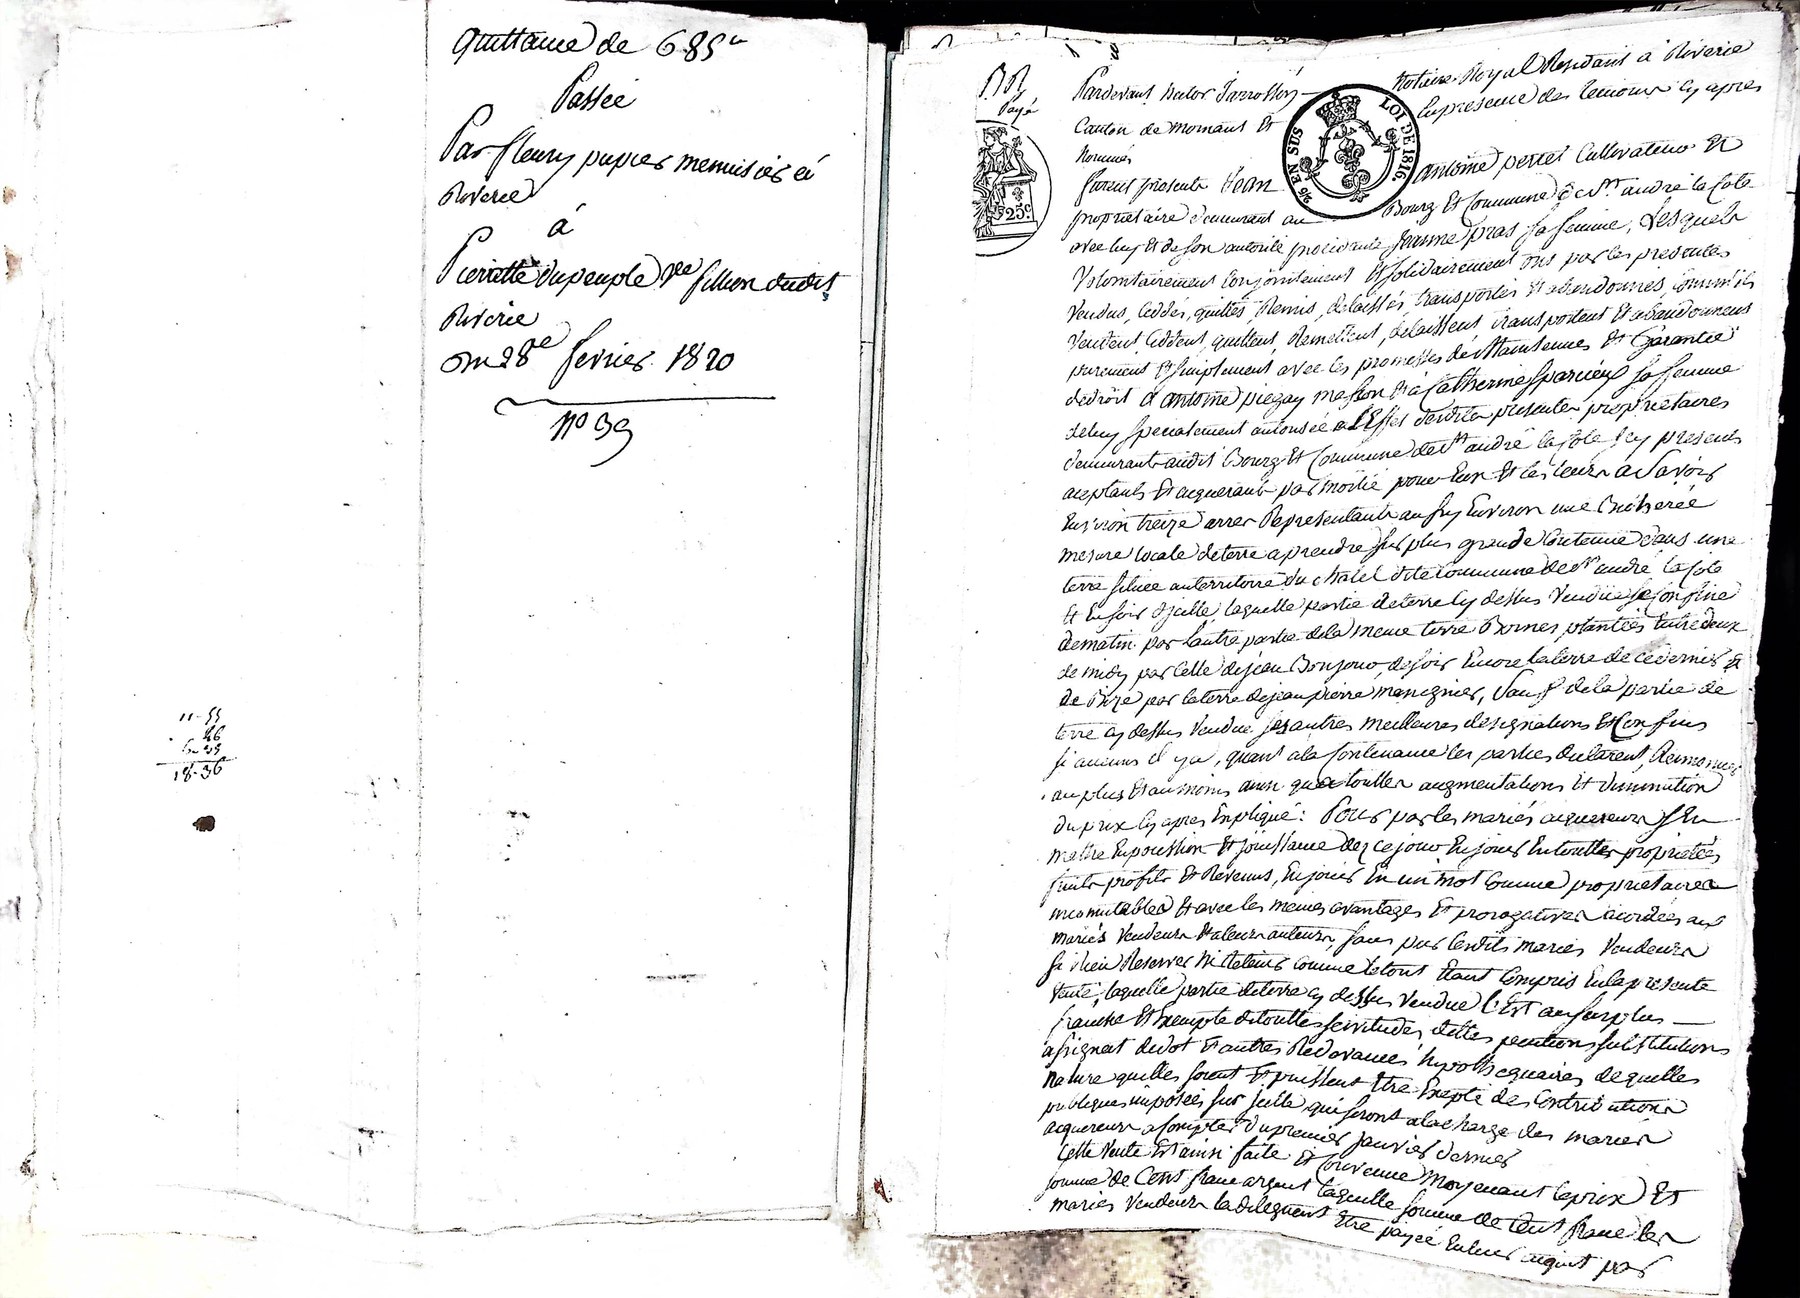 quittance de 685 ₶
Passée
Par fleury pupier menuisier à
Riverie
à
Pierrette Dupeuple Vve fillion dudit
Riverie
du 28e fevrier 1820
N° 39
11-55
46
6-35
18-36
Payé
25c
2/6 EN SUS
LOI DE 1816
Pardevant notaire Royal Residant à Riverie
Canton de Mornant Et En presence des temoins cy apres
Nommés
furent presents Jean antoine pertel Cultivateur Et
proprietaire demeurant au Bourg Et Commune de St andré la Cote
avec luy Et de son autorité procédante Jeanne pras sa femme, Lesquels
Volontairement Conjointement Et solidairement ont par les presentes
Vendus, Ceddés, quittés Remis, delaissés, transportés Et abandonnés, Comme ils
Vendent, Ceddent, quittent, Remettent, delaissent transportent Et abandonnent
purement Et simplement avec les promesses de Maintenue Et Garantie
de droit à antoine piegay masson Et à Catherine sa femme
de luy specialement autorisée à l'Effet des dites presentes proprietaires
demeurants audit Bourg Et Commune de St andré la Cote Icy presents
acceptants Et acquerants par moitié pour Eux Et les leurs a Savoir
Environ treize arres Representants au fur Environ une Bicherée
mesure locale de terre a prendre sur plus grande Contenue dans une
terre situee au territoire du Chatel dite Commune de St andré la Cote
Et En soir d'jcelle, laquelle partie de terre cy dessus Vendue se Confine
de matin par l'autre partie de la meme terre Bornes plantées Entre deux
de midy par Celle de jean Bonjour, de soir Encore la terre de ce dernier Et
de Bize par la terre de jean pierre manignier, Sauf de la partie de
terre cy dessus Vendue ses autres meilleures designations Et Confins
si aucuns il y a, quant a la Contenance les parties declarent Renoncer
au plus Et au moins ainsi qu'a toutes augmentations Et diminution
du prix cy apres Expliqué: Pour par les mariés acquereurs s'En
mettre En possession Et jouissance dez ce jour En jouir En toutes proprietés
fruits profits Et Revenus, En jouir En un mot Comme proprietaires
incomutables Et avec les memes avantages Et prorogatives acordées aux
mariés Vendeurs Et a leurs auteurs, sans par lesdits mariés Vendeurs
se Rien Reserver Ni Retenir comme le tout Etant Compris En la presente
Vente, laquelle partie de terre cy dessus Vendue l'Est au surplus
franche Et Exempte de touttes servitudes dettes pentions substitutions
assignat de dot Et autres Redevances hypothequaires de quelles
Nature quelles soient Et puissent Etre Excepté des Contributions
publiques imposées sur jcelle qui seront a la charge des mariés
acquereurs a Compter du premier janvier dernier
Cette Vente Est ainsi faite Et Convenue Moyenant le prix Et
somme de Cent franc argent laquelle somme de Cent franc les
mariés Vendeurs la deleguent Etre payée En leur aquit par